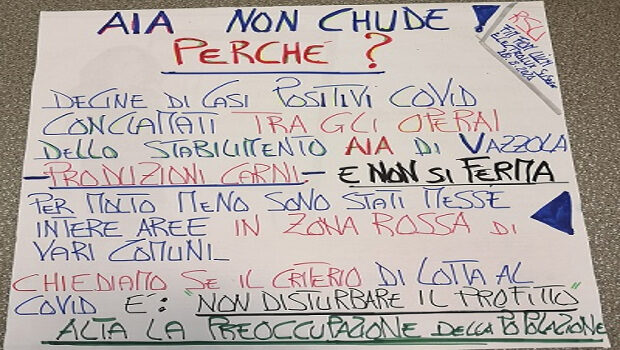 AIA NON CHUDE!
PERCHE?
RSU
FIM FIOM UILM
ELECTROLUX SUSEGANA
DECINE DI CASI POSITIVI COVID
CONCLAMATI TRA GLI OPERAI
DELLO STABILIMENTO AIA DI VAZZOLA
-PRODUZIONI CARNI- E NON SI FERMA
PER MOLTO MENO SONO STATI MESSE
INTERE AREE IN ZONA ROSSA DI
VARI COMUNI
CHIEDIAMO SE IL CRITERIO DI LOTTA AL
COVID E': "NON DISTURBARE IL PROFITTO"
ALTA LA PREOCCUPAZIONE DELLA POPOLAZIONE